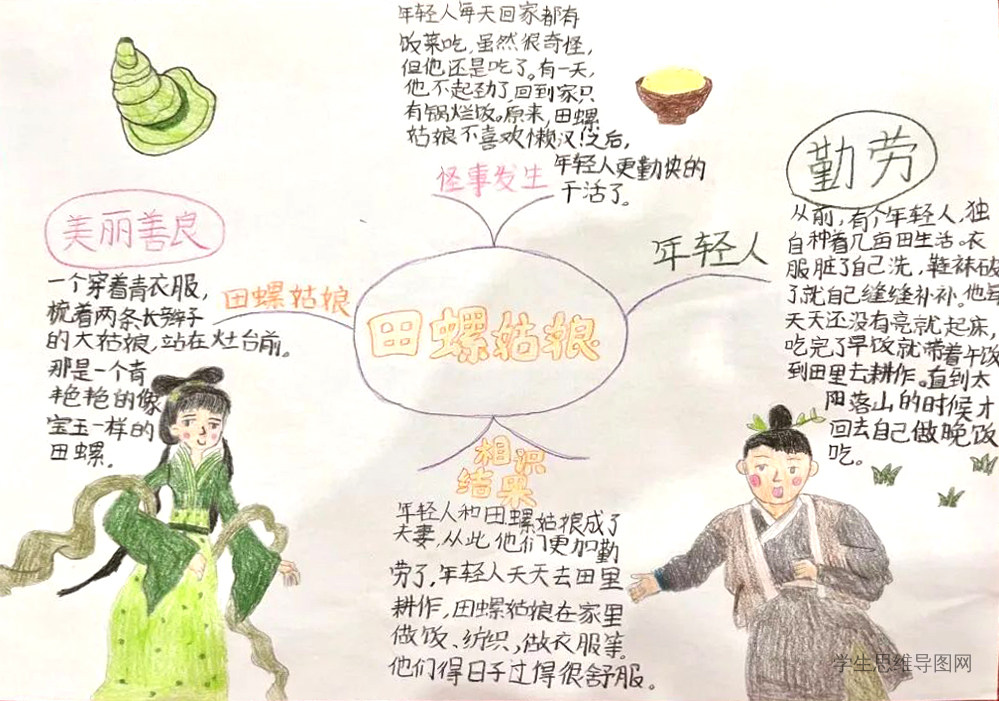 年轻人每天回家都有
饭菜吃,虽然很奇怪,
但他还是吃了。有一天,
他不起劲了,回到家只
有锅烂饭。原来,田螺
姑娘不喜欢懒汉!之后,
年轻人更勤快的
干活了。
怪事发生
勤劳
年轻人
从前,有个年轻人,独
自种着几亩田生活。衣
服脏了自己洗,鞋袜破
了就自己缝缝补补。他每
天天还没有亮就起床,
吃完了早饭就带着午饭
到田里去耕作。直到太
阳落山的时候才
回去自己做晚饭
吃。
美丽善良
田螺姑娘
一个穿着青衣服,
梳着两条长辫子
的大姑娘,站在灶台前。
那是一个青
艳艳的像
宝玉一样的
田螺.
田螺姑娘
相识
结果
年轻人和田螺姑娘成了
夫妻,从此他们更加勤
劳了,年轻人天天去田里
耕作,田螺姑娘在家里
做饭、纺织,做衣服等。
他们得日子过得很舒服。
学生思维导图网